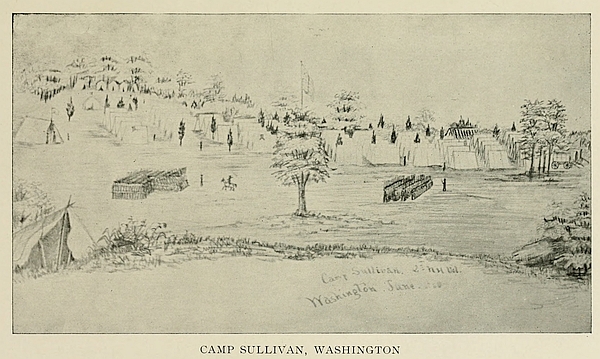 Camp Sullivan, 2d NH Vol.
Washington, June
CAMP SULLIVAN, WASHINGTON